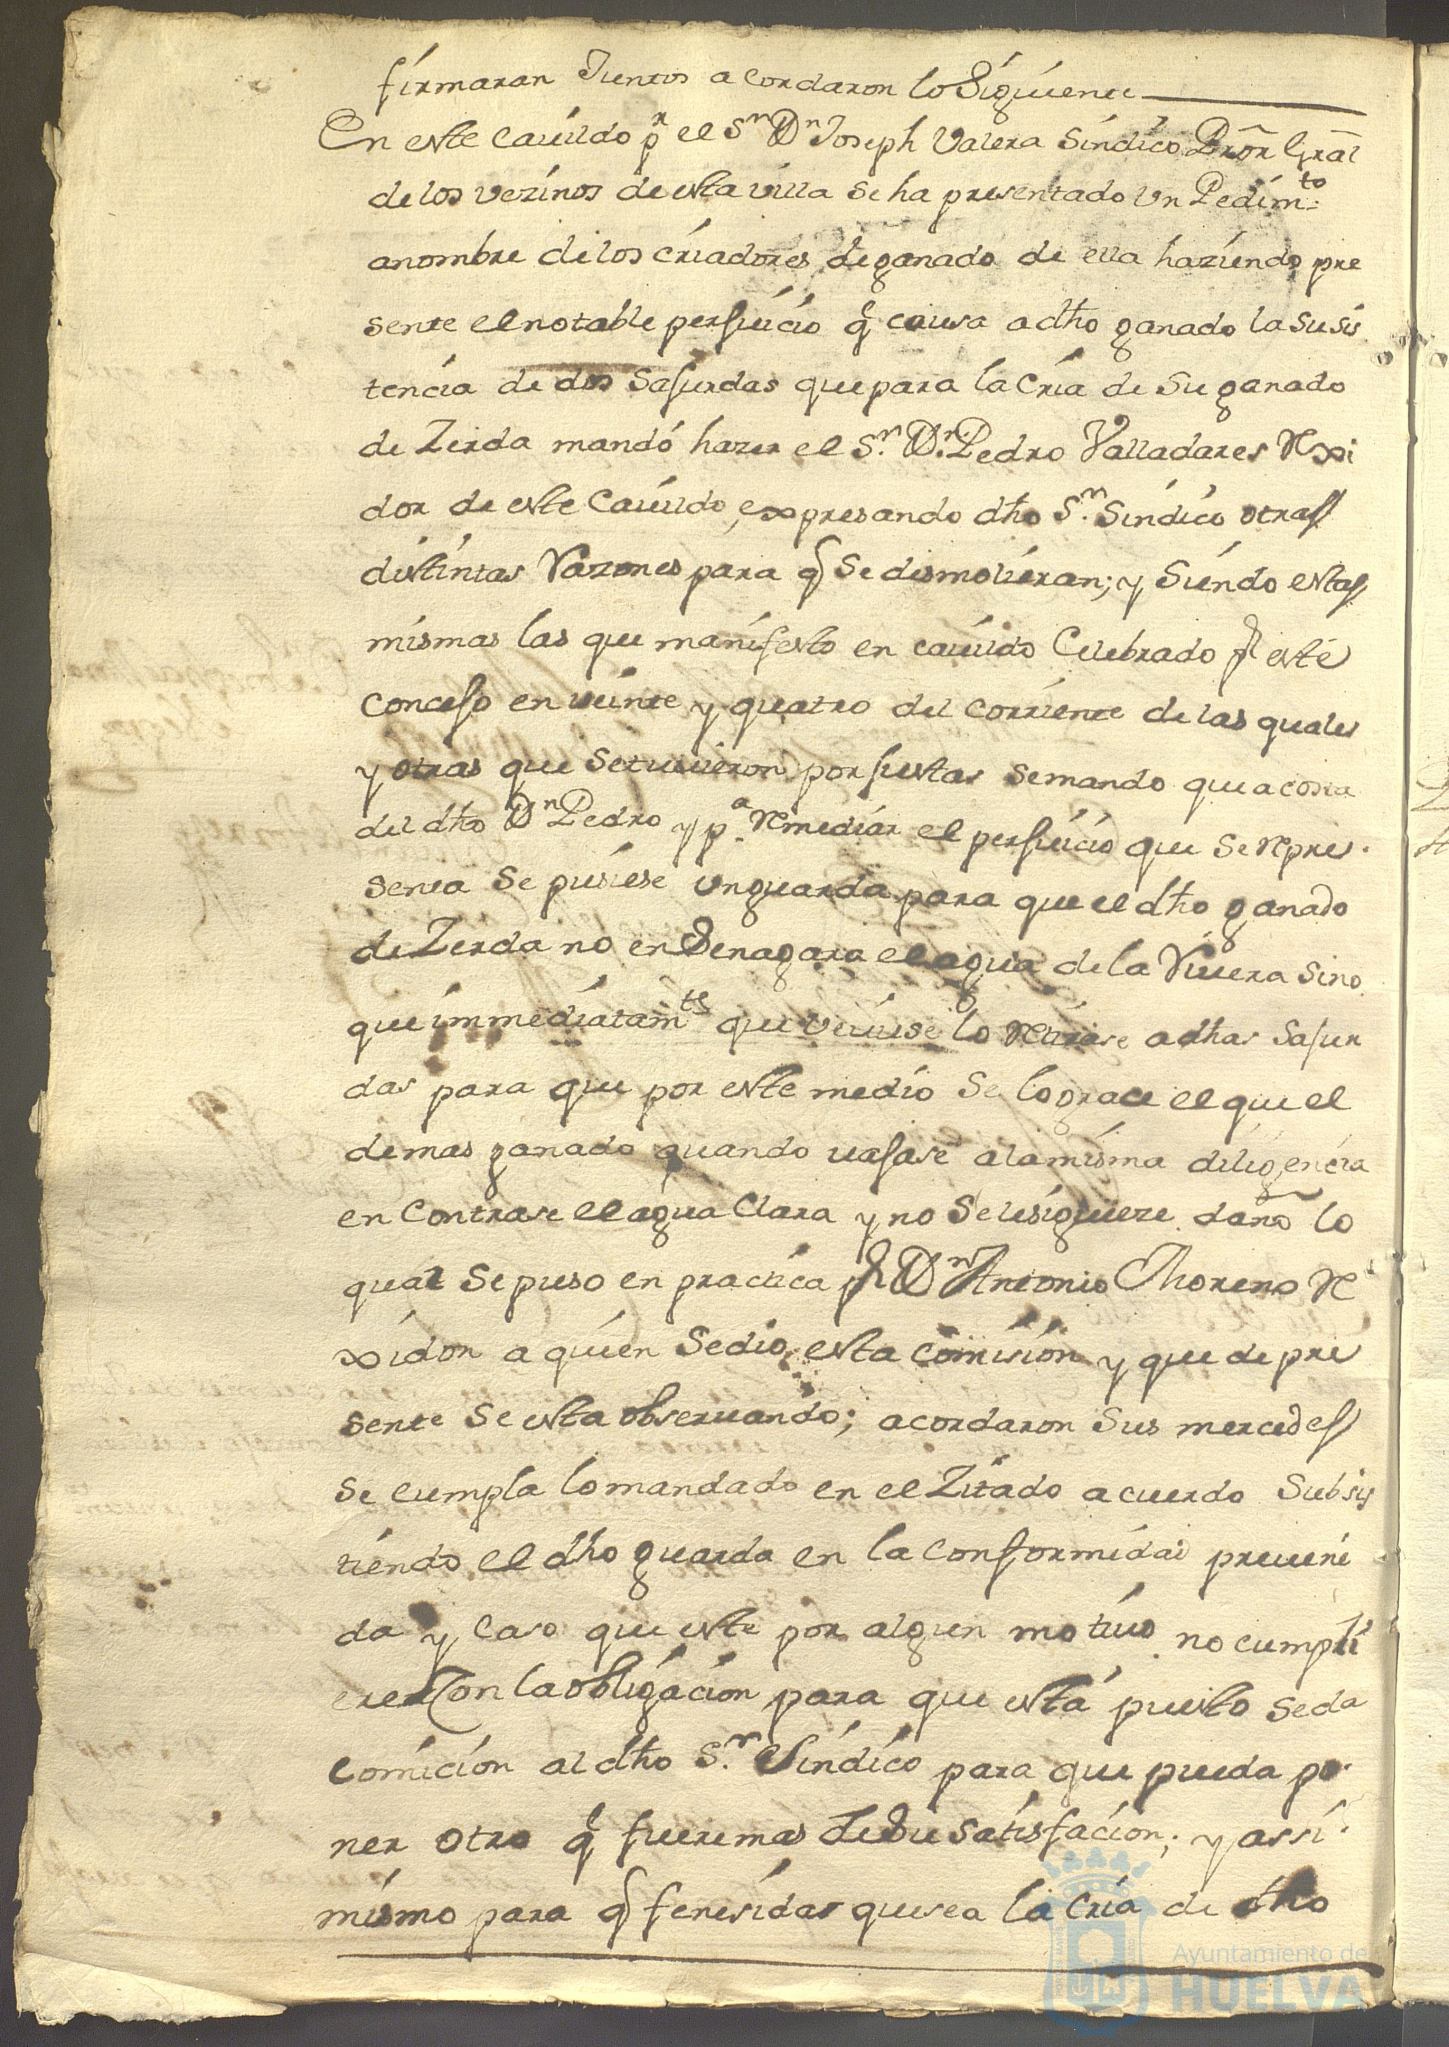 firmaran Juntos acordaron lo Siguiente
En este Cavildo pr el Sr Dn Joseph Valera Sindico Pror Gral
de los vezinos de esta villa Se ha presentado Un Pedimto
a nombre de los criadores de ganado de ella haziendo pre
sente el notable perjuicio q causa a dho ganado la susis
tencia de dos Sajurdas que para la Cria de Su ganado
de Zerda mandó hazer el Sr. Dn. Pedro Valladares Rexi
dor de este Cavildo, expresando dho Sr. Sindico otras
distintas Razones para q Se dismolieran; y Siendo estas
mismas las que manifesto en cavildo Celebrado pr este
Concejo en veinte y quatro del corriente de las quales
y otras que Se tuvieron por justas Se mando que a costa
del dho Dn Pedro y pa. Remediar el perjuicio que Se Repre
senta Se pusiese un guarda para que el dho ganado
de Zerda no enSenagara el agua de la Rivera sino
que immediatamte que veviese lo Retirase a dhas Sajur
das para que por este medio Se lograce el que el
demas ganado quando vajase a la misma diligencia
encontrase el agua Clara y no Se le siguieze daño lo
qual Se puso en practica pr Dn Antonio Moreno Re
xidor a quien Se dio esta comision y que de pre
sente Se esta observando; acordaron Sus mercedes
Se cumpla lo mandado en el Zitado acuerdo Subsis
tiendo el dho guarda en la conformidad preveni
da y caso que este por algun motivo no cumpli
ere Con la obligacion para que está puesto Se da
comicion al dho Sr. Sindico para que pueda po
ner otro q fuere mas de Su satisfacion; y assi
mismo para q fenesida que sea la Cria de dho
Ayuntamiento de
HUELVA